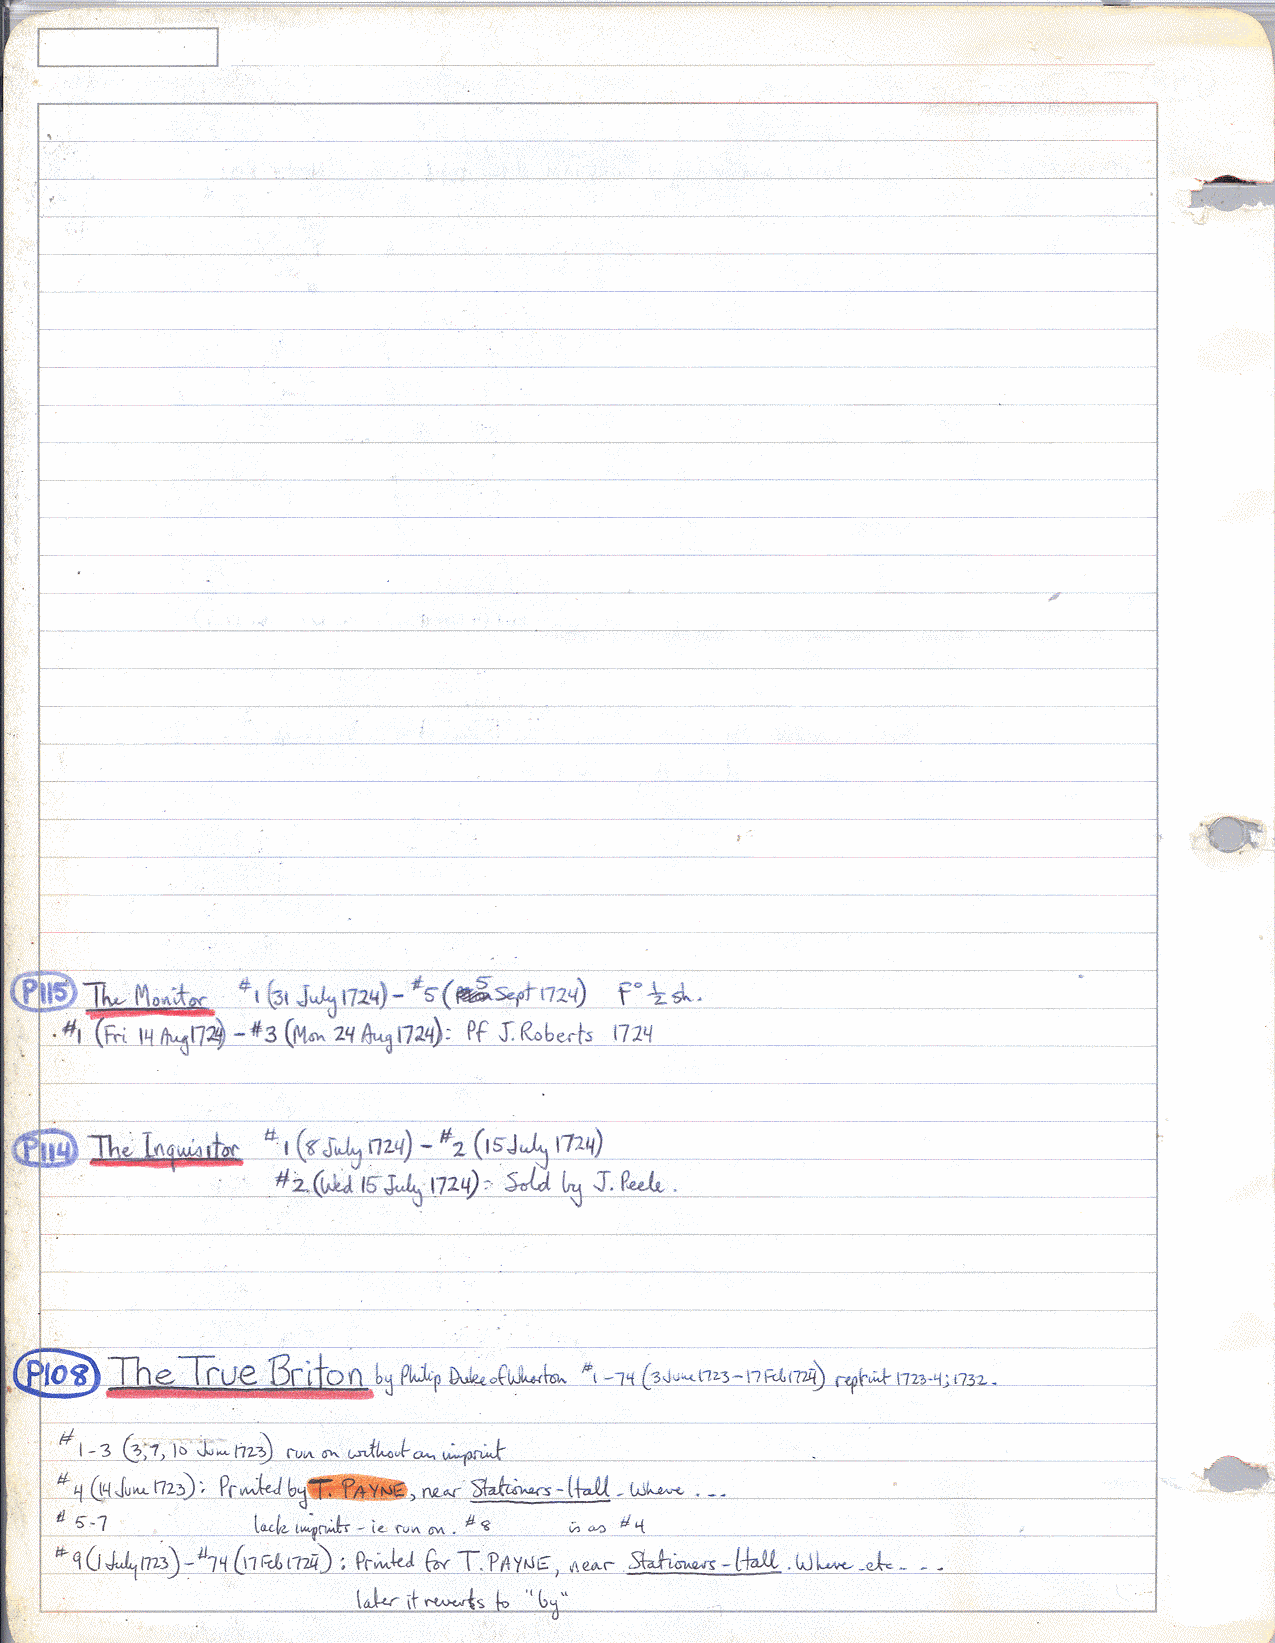 P115 The Monitor #1 (31 July 1724) - #5 (5 Sept 1724) F° ½ sh.
#1 (Fri 14 Aug 1724) - #3 (Mon 24 Aug 1724): Pf J. Roberts 1724
P114 The Inquisitor #1 (8 July 1724) - #2 (15 July 1724)
#2 (Wed 15 July 1724): Sold by J. Peele.
P108 The True Briton by Philip Duke of Wharton #1-74 (3 June 1723 - 17 Feb 1724) reprint 1723-4; 1732.
#1-3 (3, 7, 10 June 1723) run on without an imprint
#4 (14 June 1723): Printed by T. PAYNE, near Stationers-Hall. Where ...
# 5-7 lack imprints - ie run on. #8 is as #4
#9 (1 July 1723) - #74 (17 Feb 1724): Printed for T. PAYNE, near Stationers-Hall. Where etc ...
later it reverts to "by"